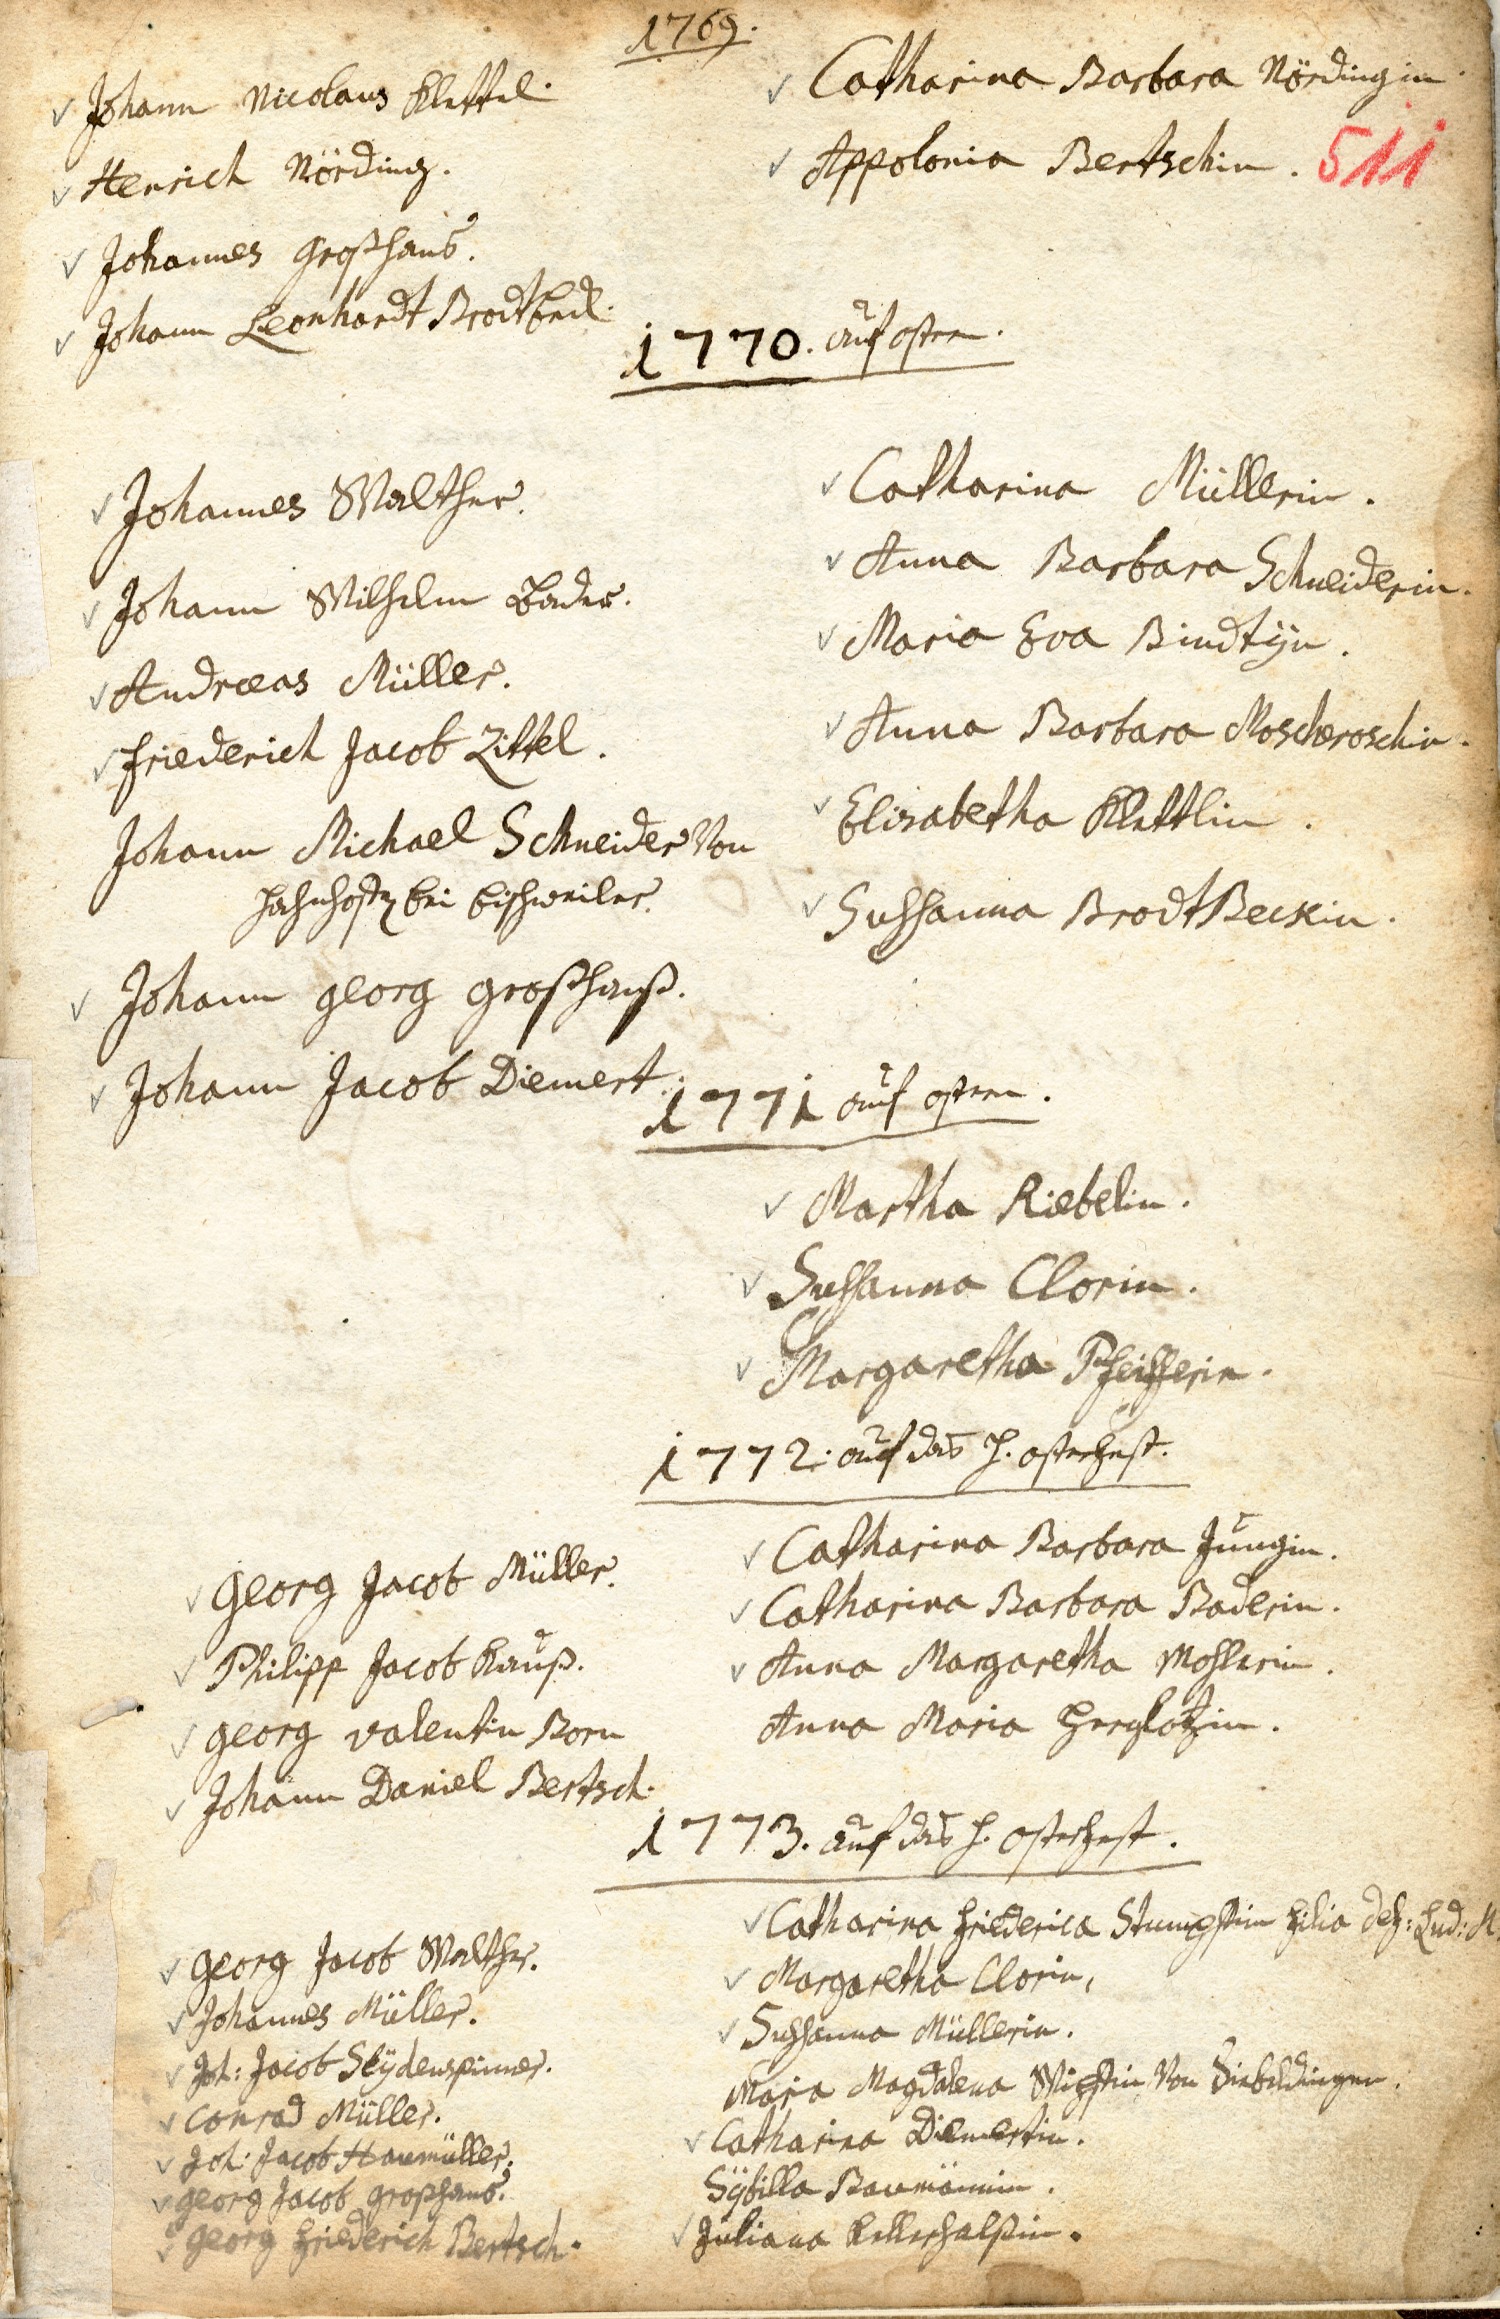 1769.
Johann Nicolaus Klettel.
Henrich Nörding.
Johannes Großhans.
Johann Leonhardt Brodtbeck.
Catharina Barbara Nördingin
Appolonia Bertschin.
511
1770. auf ostern.
Johannes Walther.
Johann Wilhelm Bader.
Andreas Müller.
Friederich Jacob Zittel.
Johann Michael Schneider Von
bei bischweiler.
Johann georg großhanß.
Johann Jacob Diemert.
Catharina Müllerin.
Anna Barbara Schneiderin.
Maria Eva Bindtÿn.
Anna Barbara Moscheroschin.
Elisabetha Klettlin.
Susanna BrodtBeckin.
1771 auf ostern.
Martha Riebelin.
Susanna Clorin.
Margaretha Pfeifferin.
1772. auf das H. osterfest.
Georg Jacob Müller.
Philipp Jacob Kauß.
georg valentin Born
Johann Daniel Bertsch.
Catharina Barbara Jungin.
Catharina Barbara Baderin.
Anna Margaretha Mohlerin.
Anna Maria Herglotzin.
1773. auf das H. osterfest.
georg Jacob Walther.
Johannes Müller.
Joh: Jacob Seÿdenspinner.
Conrad Müller.
Joh: Jacob Haumüller.
georg Jacob großhans.
georg Friederich Bertsch.
Catharina Friederica filia Lud: M.
Margaretha Clorin,
Susanna Müllerin.
Maria Magdalena Von
Catharina Diemertin.
Sÿbilla Baumännin.
Juliana Kellerhalsin.